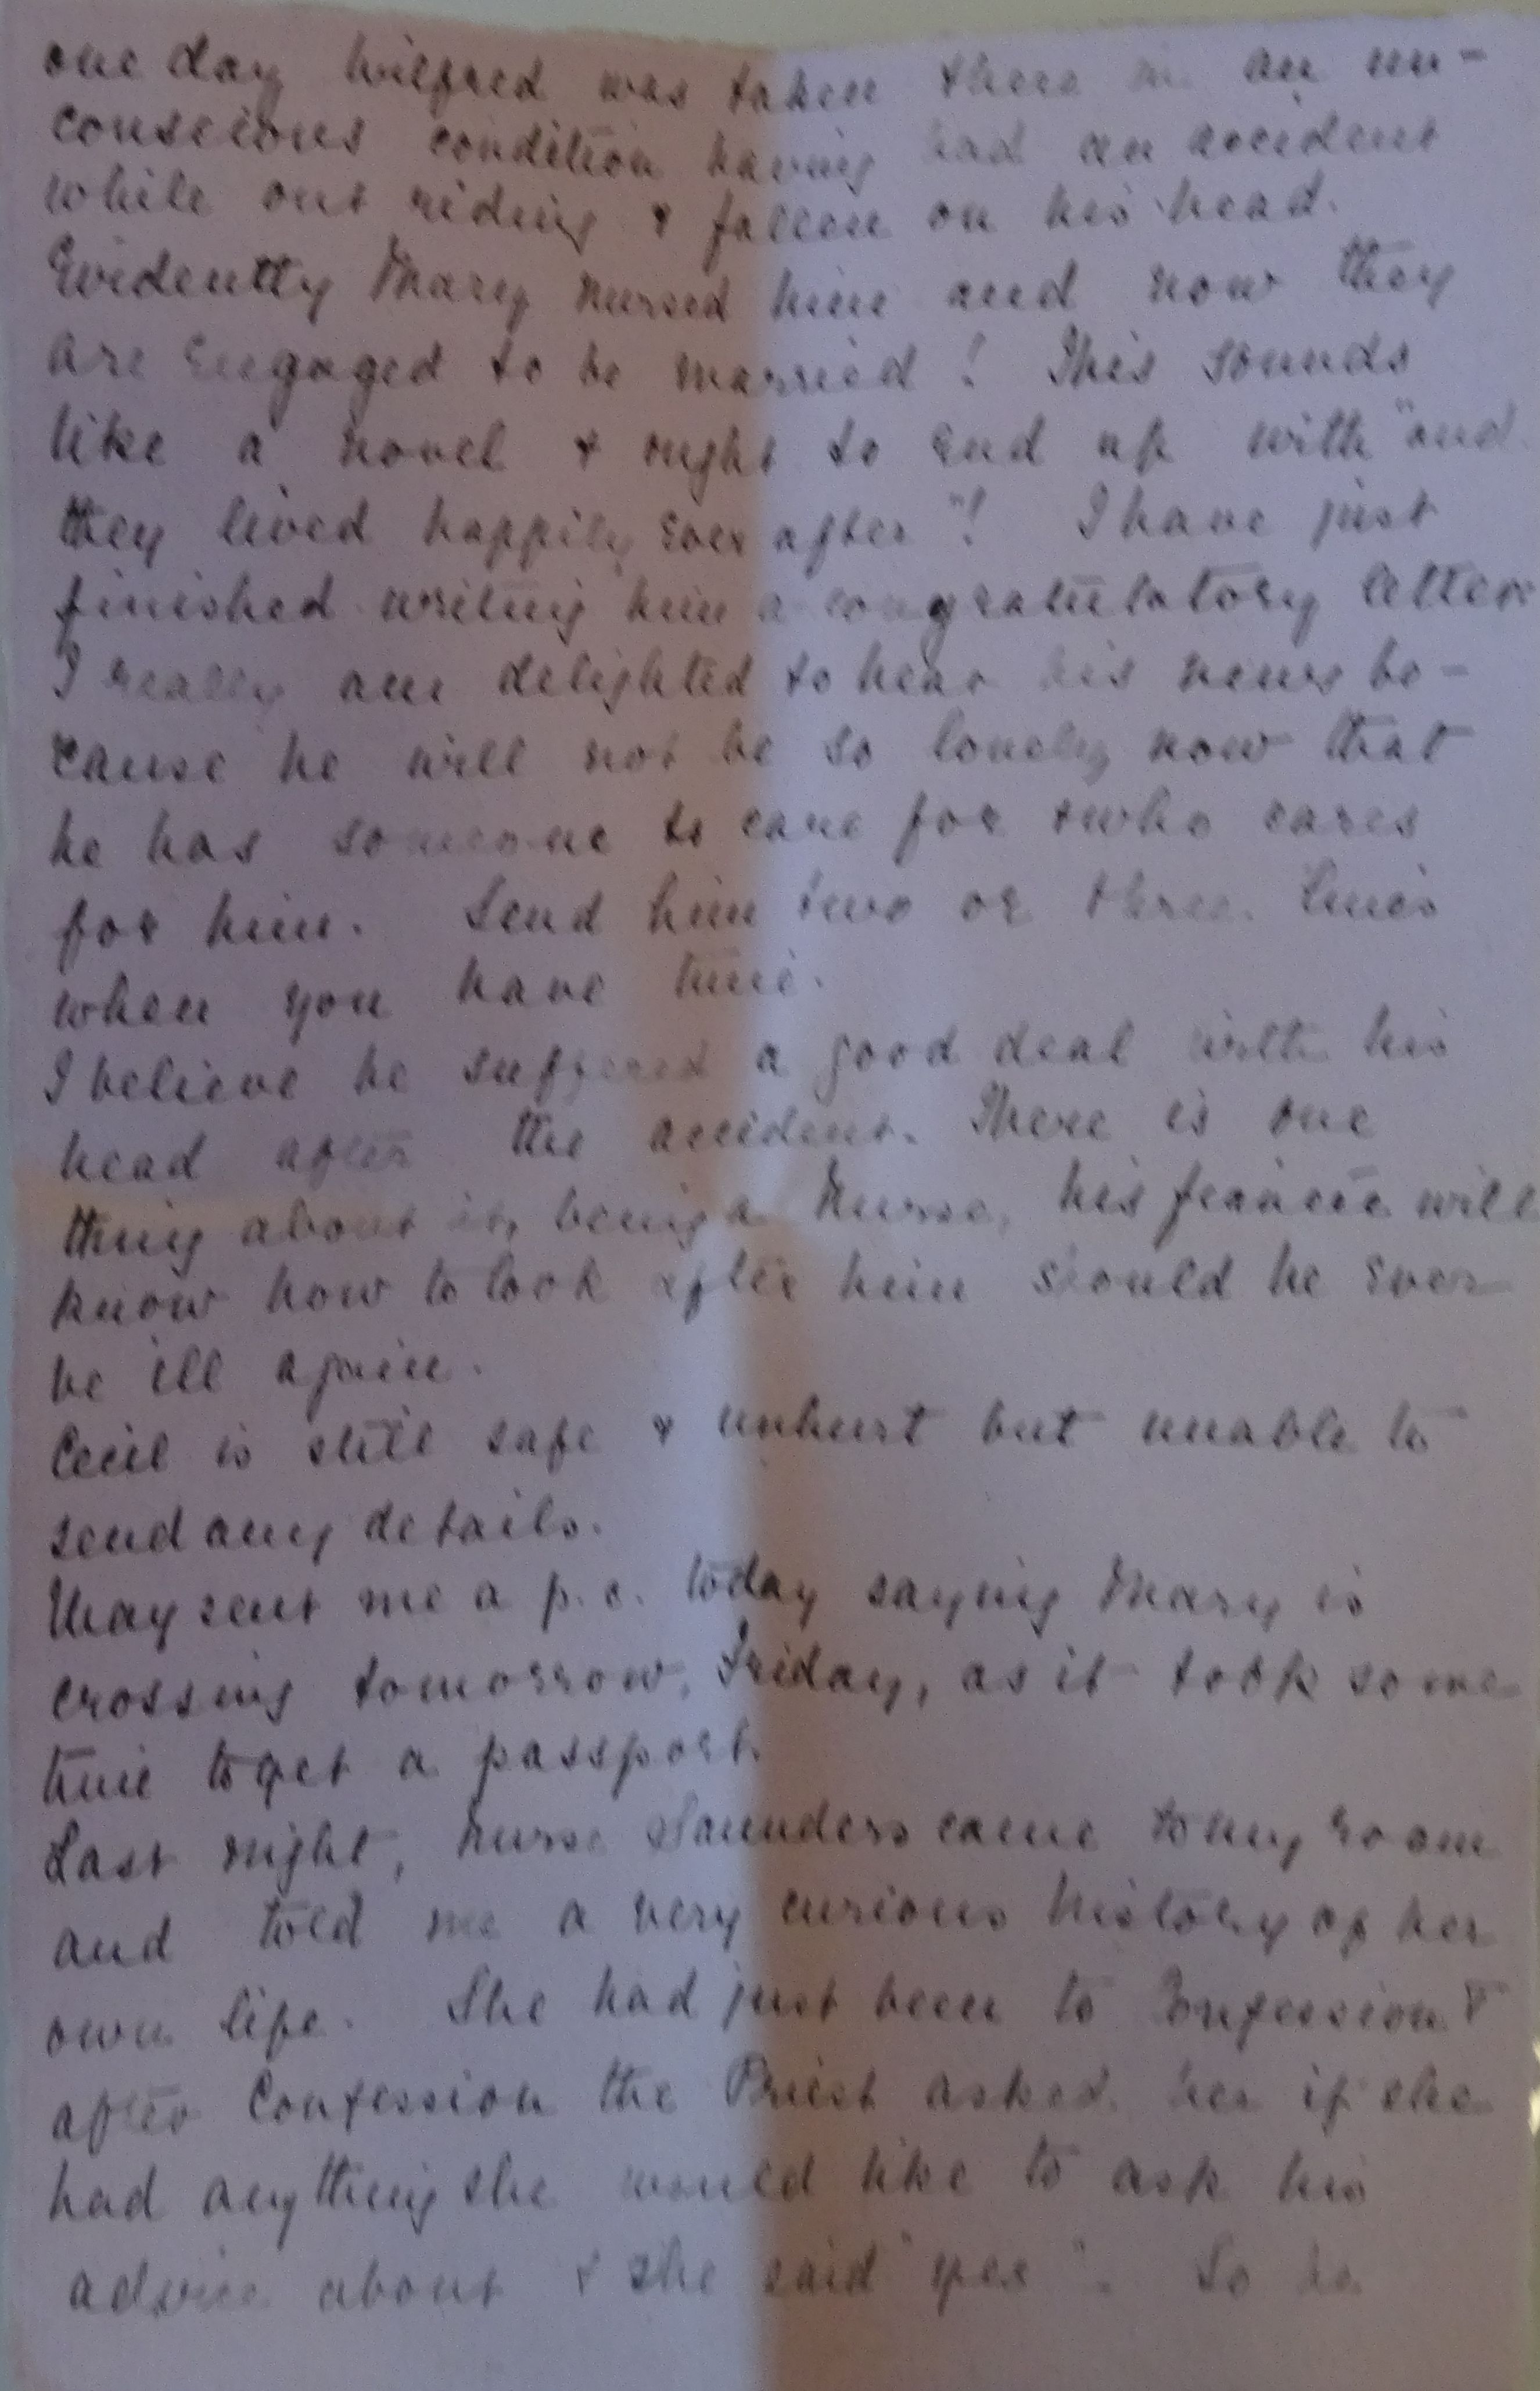 one day Wilfred was taken there in an un-
conscious condition having had an accident
while out riding & fallen on his head.
Evidently Mary nursed him and now they
are engaged to be married! This sounds
like a novel & ought to end up with "and
they lived happily ever after"! I have just
finished writing him a congratulatory letter
I really am delighted to hear his news be-
cause he will not be so lonely now that
he has someone to care for & who cares
for him. Send him two or three lines
when you have time.
I believe he suffered a good deal with his
head after the accident. There is one
thing about it, being a nurse, his feancée will
know how to look after him should he ever
be ill again.
Cecil is still safe & unhurt but unable to
send any details.
May sent me a p.c. today saying Mary is
crossing tomorrow, Friday, as it took some
time to get a passport.
Last night, Nurse Saunders came to my room
and told me a very curious history of her
own life. She had just been to Confession &
after Confession the Priest asked her if she
had anything she would like to ask his
advice about & she said "yes". So he